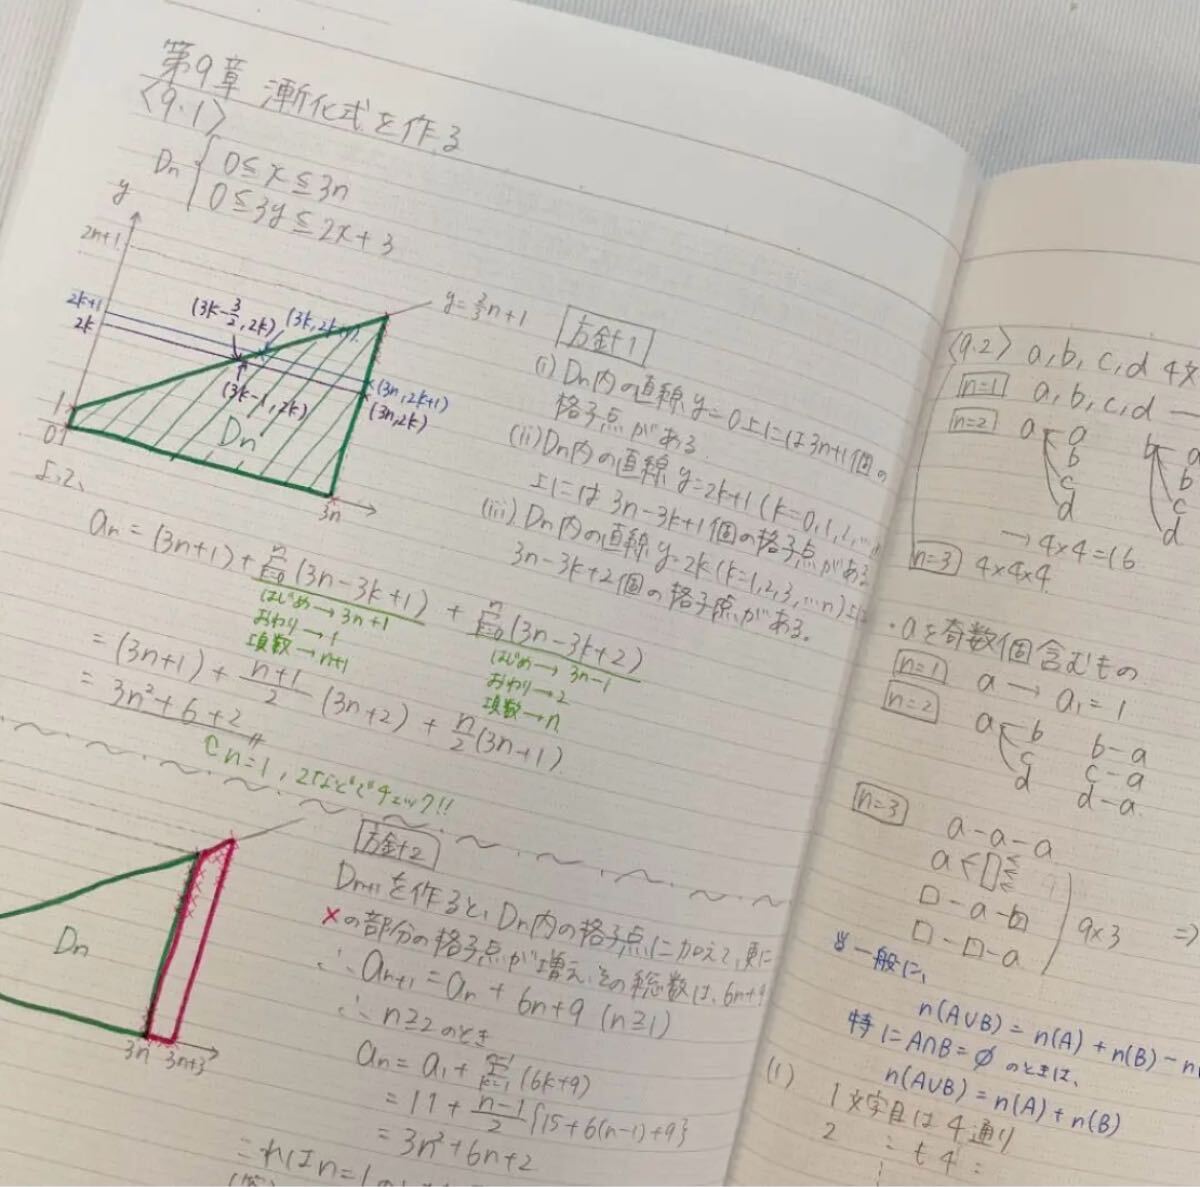 第9章 漸化式を作る
〈9.1〉
Dn { 0≦x≦3n
0≦3y≦2x+3
y
2n+1
2k+1
2k
1
0
3n
(3k-3/2, 2k)
(3k, 2k+1)
(3k-1, 2k)
(3n, 2k+1)
(3n, 2k)
Dn
y=2/3n+1
方針1
(i) Dn内の直線y=0上には3n+1個の
格子点がある.
(ii) Dn内の直線y=2k+1 (k=0,1,2,…
上には 3n-3k+1個の格子点がある
(iii) Dn内の直線y=2k (k=1,2,3,…n)上に
3n-3k+2個の格子点がある。
よって、
an = (3n+1) + Σ[k=0→n] (3n-3k+1) + Σ (3n-3k+2)
はじめ→3n+1
おわり→1
項数→n+1
はじめ→3n-1
おわり→2
項数→n
= (3n+1) + n+1/2 (3n+2) + n/2 (3n+1)
= 3n²+6+2
n=1, 2などでチェック!!
方針2
Dn
3n
3n+3
Dn+1を作ると、Dn内の格子点に加えて、更に
×の部分の格子点が増え、その総数は、6n+9
∴ an+1 = an + 6n+9 (n≧1)
∴ n≧2のとき
an = a1 + Σ[k=1→n-1] (6k+9)
= 11 + n-1/2 {15+6(n-1)+9}
= 3n²+6n+2
これはn=1の
(答)
〈9.2〉 a, b, c, d 4文
n=1 a, b, c, d
n=2 a a b c d
b a b c d
→ 4×4=16
n=3 4×4×4
・aを奇数個含むもの
n=1 a → a1 = 1
n=2 a b c d
b-a
c-a
d-a
n=3
a-a-a
a
□-a-□
□-□-a
9×3 ⇒
一般に、
n(A∪B) = n(A) + n(B) - n
特にA∩B=∅ のときは、
n(A∪B) = n(A) + n(B)
(1)
1文字目は4通り
2 〃 も4 〃